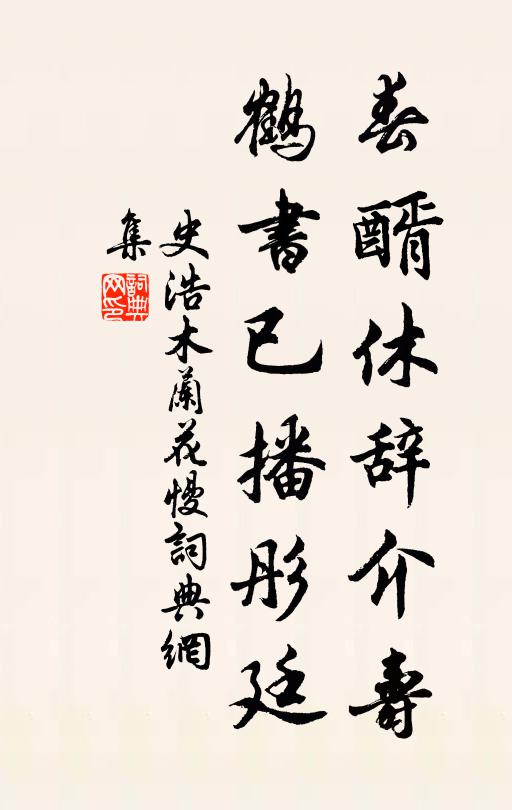 春醑休辞介壽
鶴書已播彤廷
史浩木蘭花慢詞典網
集
詞典
网印